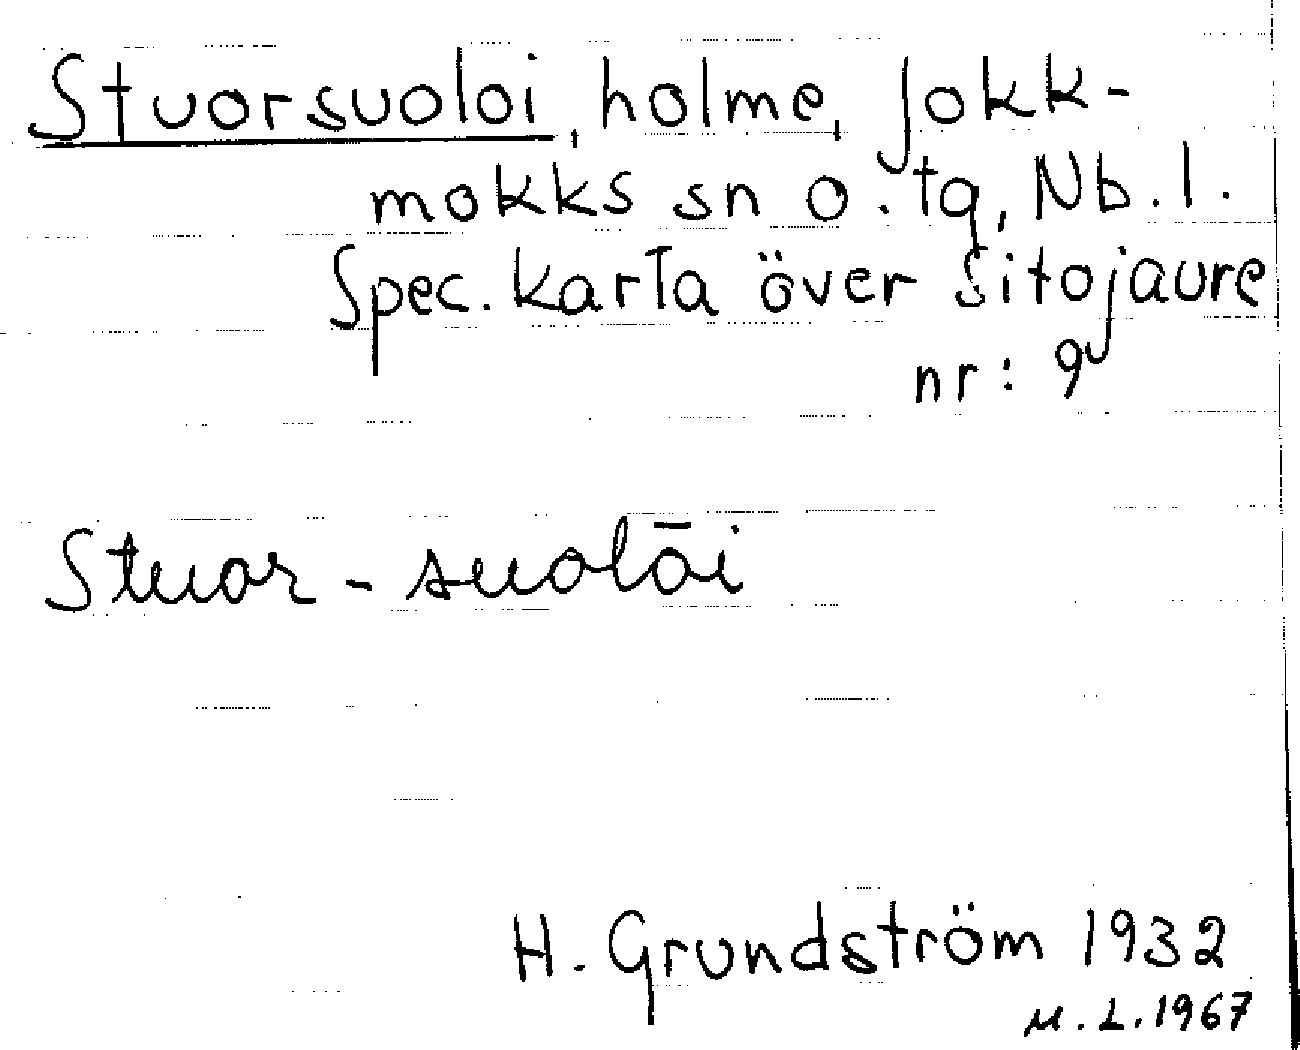 Stuorsuoloi, holme, Jokk-
mokks sn o. tg, Nb. l.
Spec. karta över Sitojaure
nr: 9
Stuor - suolōi
H. Grundström 1932
M. L. 1967